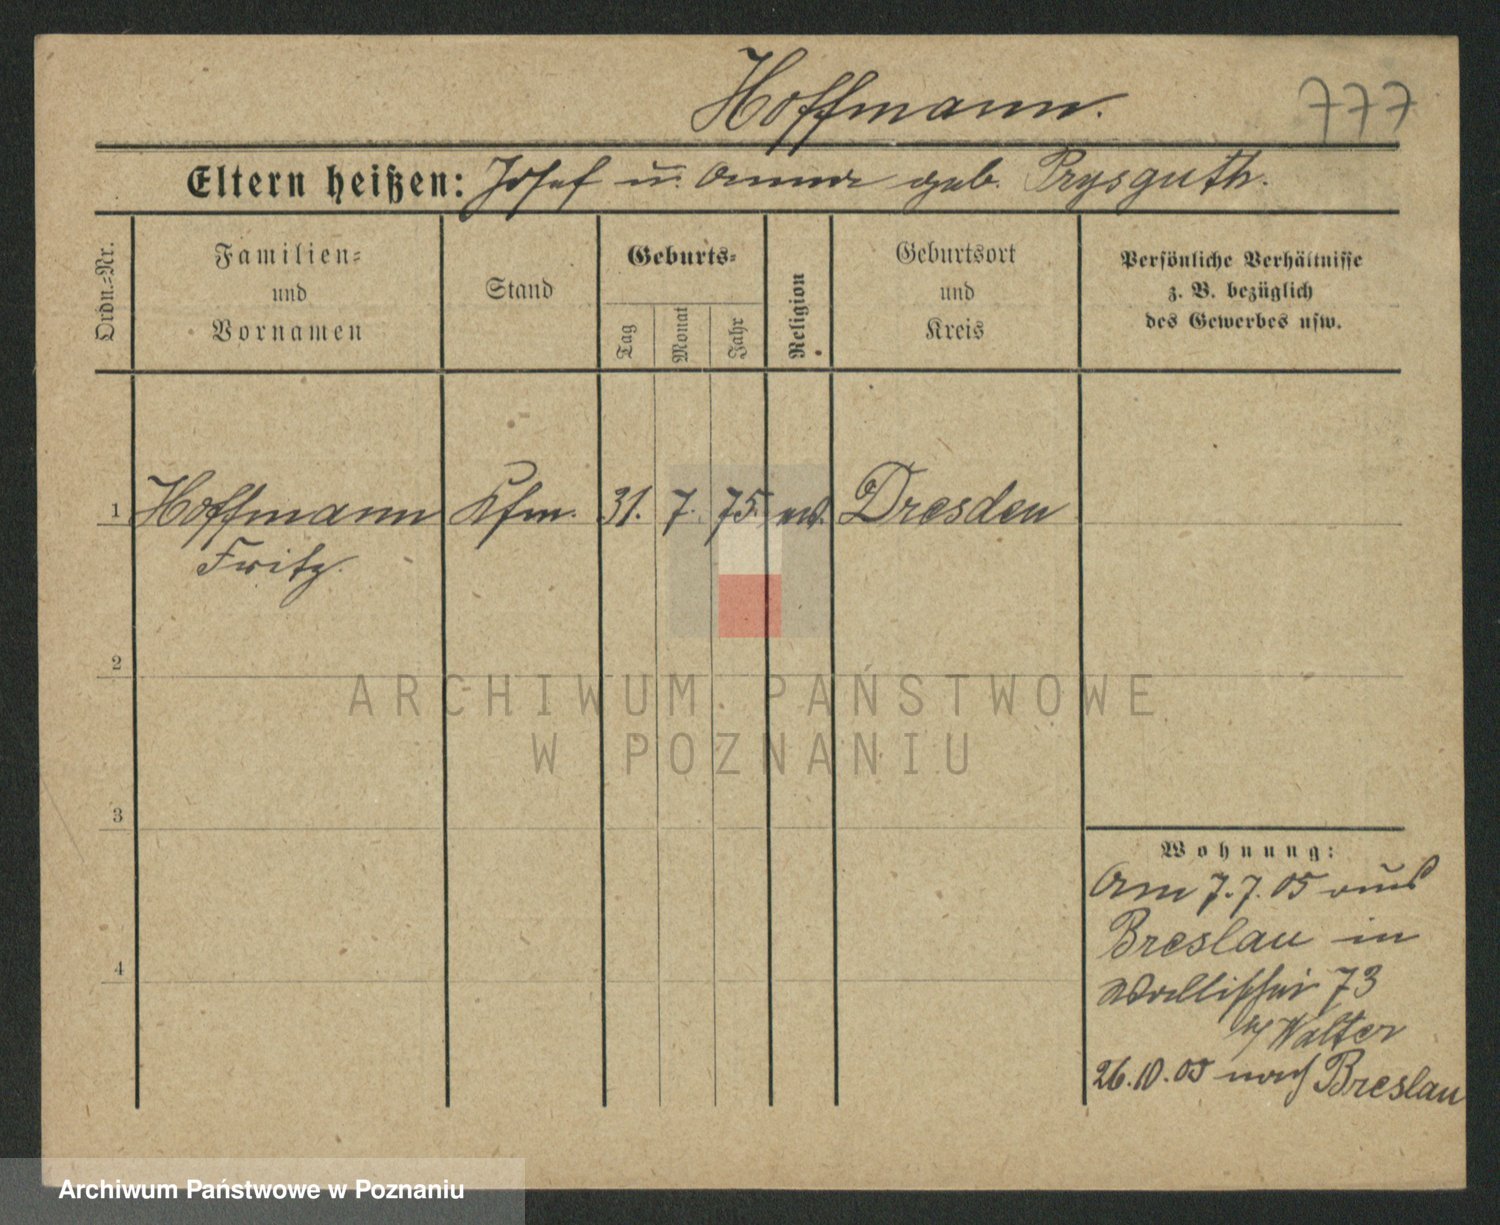 Hoffmann.
777
Eltern heißen: Josef u. Anna geb. Prysguth.
Ordn.-Nr.
Familien-
und
Vornamen
Stand
Geburts-
Tag
Monat
Jahr
Religion
Geburtsort
und
Kreis
Persönliche Verhältnisse
z. B. bezüglich
des Gewerbes usw.
1 Hoffmann Kfm. 31. 7. 75. Dresden
Fritz
2
3
4
Wohnung:
Am 7.7.05 aus
Breslau in
Wallischei 73
b/ Walter
26.10.05 nach Breslau
ARCHIWUM PAŃSTWOWE
W POZNANIU
Archiwum Państwowe w Poznaniu